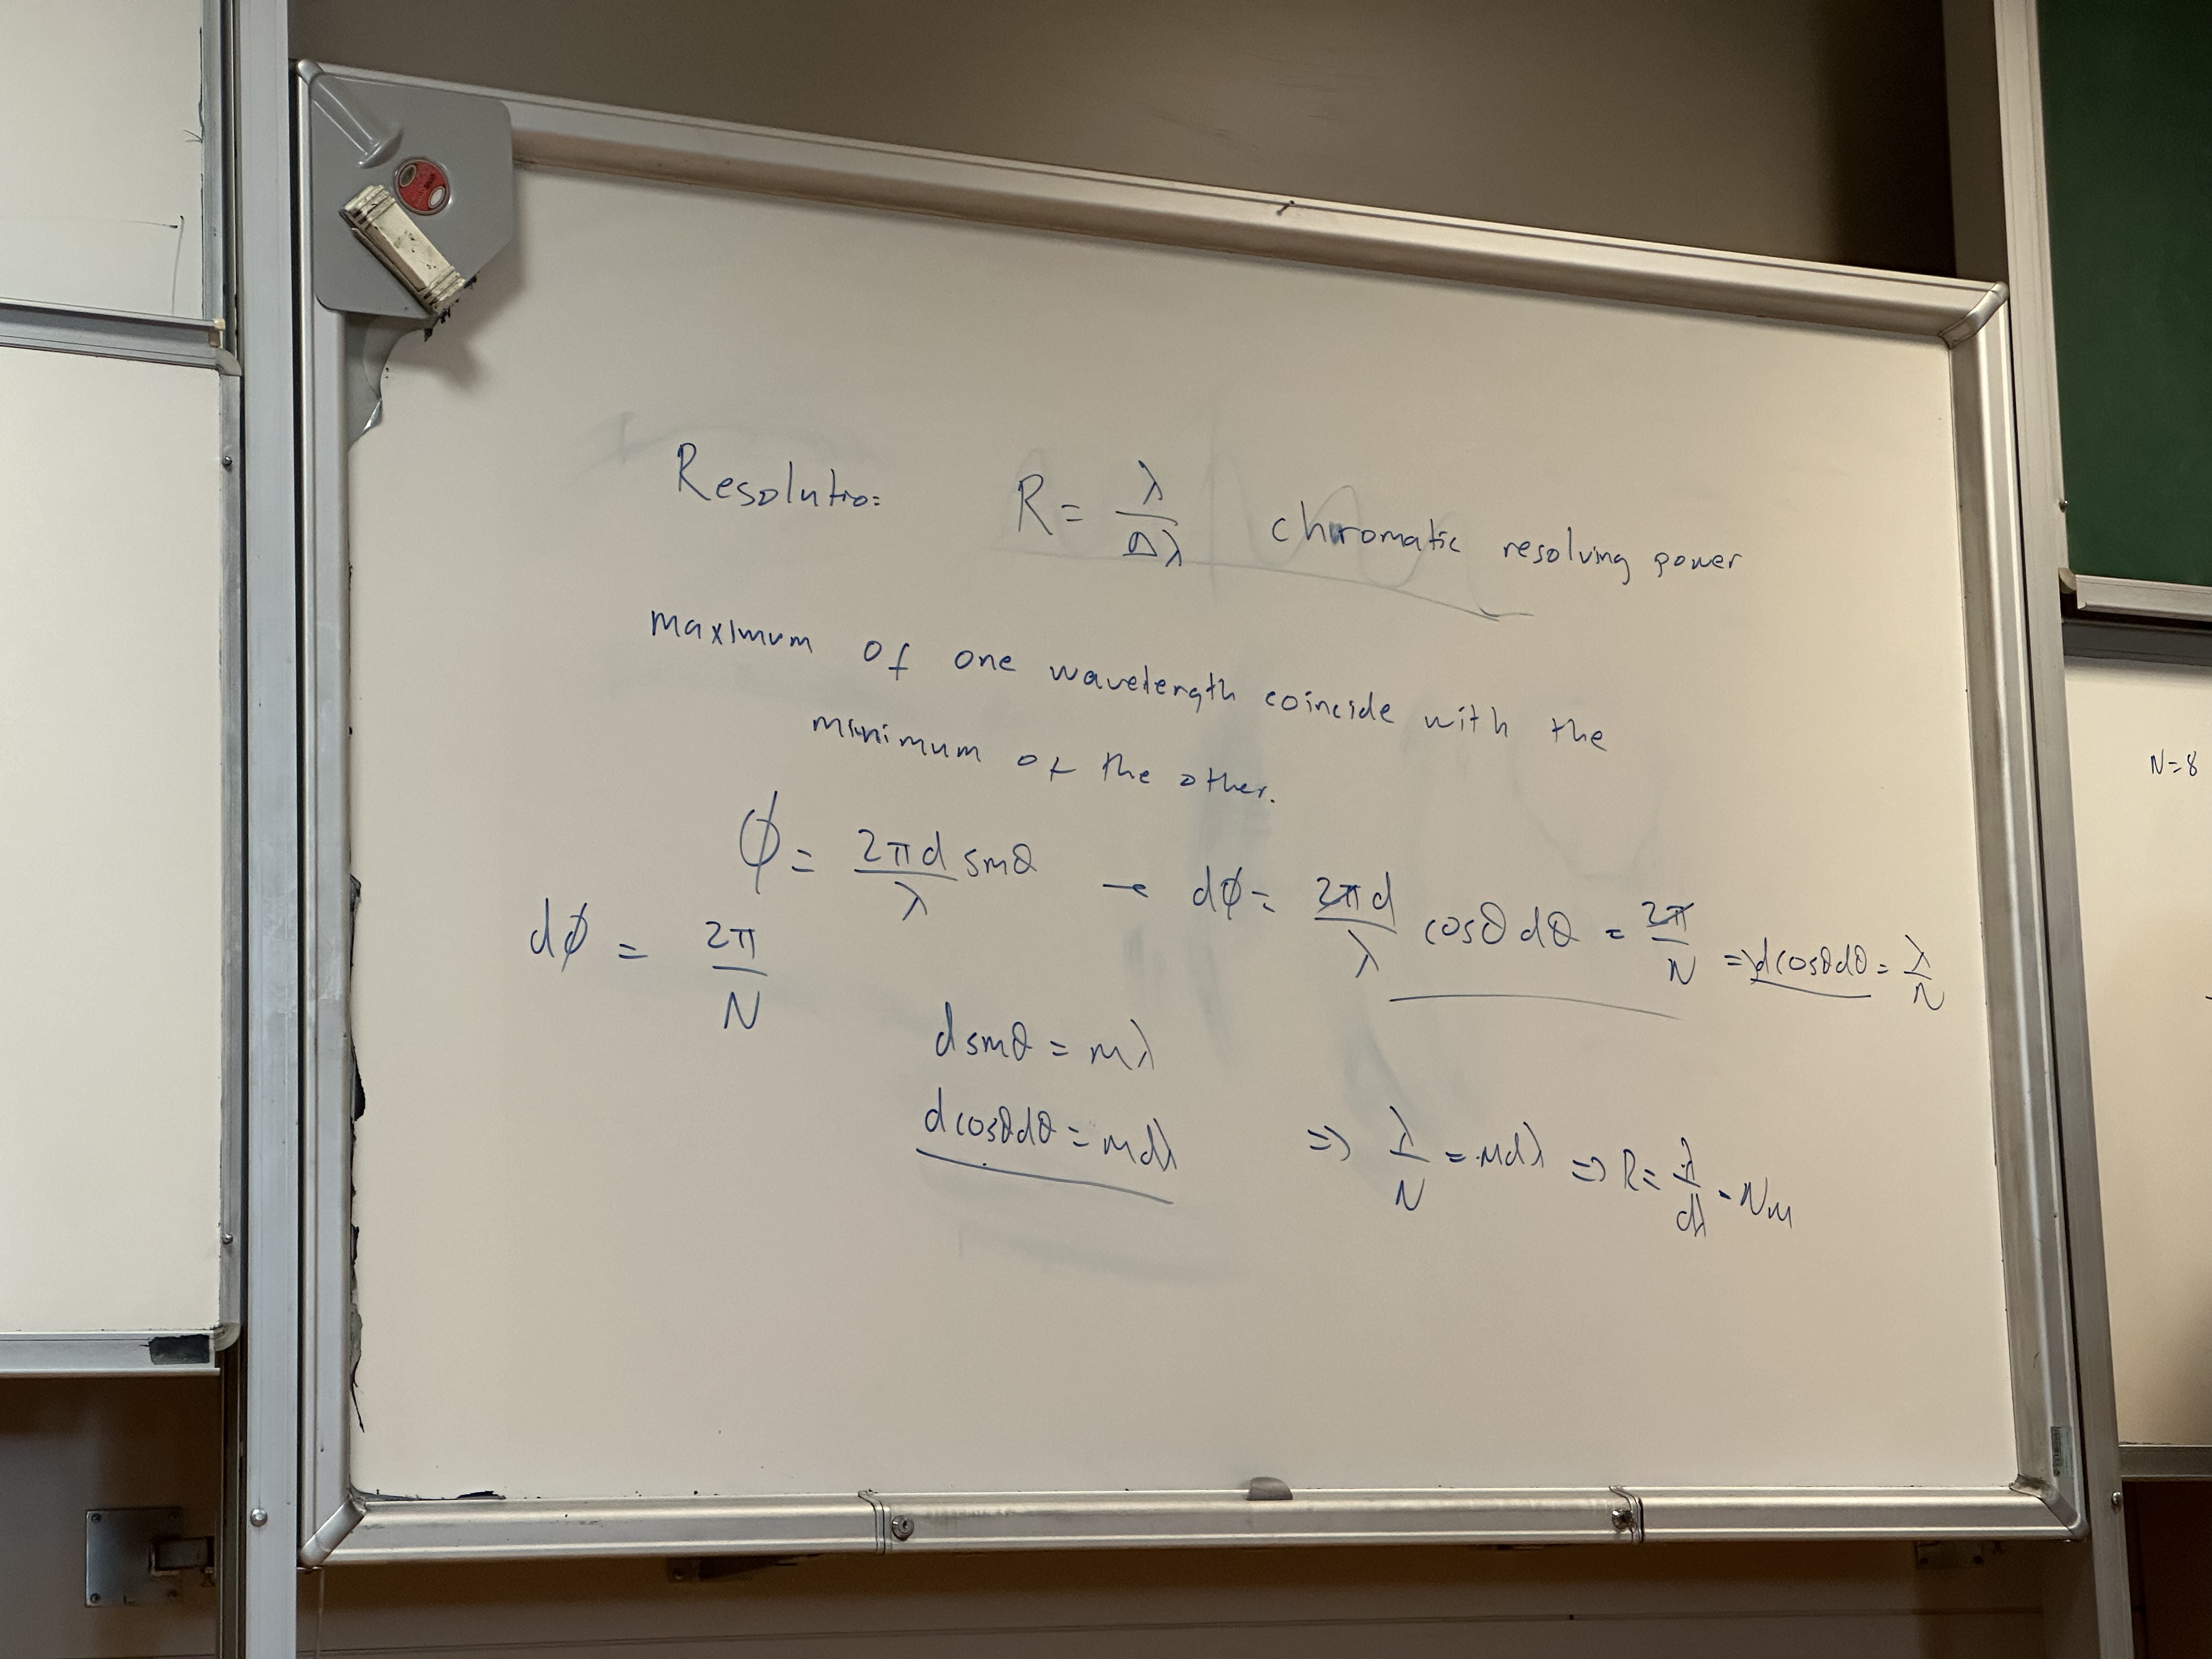 Resolutio: R = λ/Δλ chromatic resolving power
maximum of one wavelength coincide with the
minimum of the other.
ϕ = 2πd/λ sinθ → dϕ = 2πd/λ cosθ dθ = 2π/N ⇒ d cosθ dθ = λ/N
dϕ = 2π/N
d sinθ = mλ
d cosθ dθ = m dλ ⇒ λ/N = m dλ ⇒ R = λ/dλ = Nm
N=8